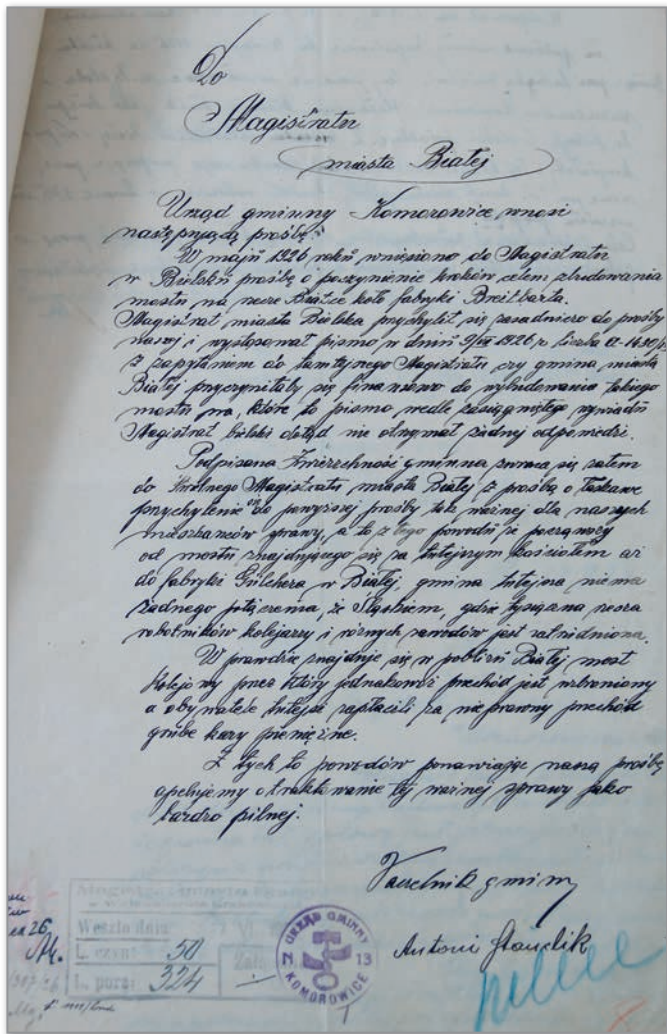 Do
Magistratu
miasta Białej
Urząd gminny Komorowice wnosi
następującą prośbę:
W maju 1926 roku wniesiono do Magistratu
w Bielsku prośbę o poczynienie kroków celem zbudowania
mostu na rzece Białce koło fabryki Breitbarta.
Magistrat miasta Bielska przychylił się zasadniczo do prośby
naszej i wystosował pismo w dniu 9/VII 1926 r liczba a-1430/
z zapytaniem do tamtejszego Magistratu czy gmina miasta
Białej przyczyniłaby się finansowo do wybudowania takiego
mostu na, które to pismo wedle zasiągniętego wywiadu
Magistrat bilski dotąd nie otrzymał żadnej odpowiedzi.
Podpisana Zwierzchność gminna zwraca się zatem
do Świetnego Magistratu, miasta Białej z prośbą o łaskawe
przychylenie się do powyższej prośby tak ważnej dla naszych
mieszkańców sprawy, a to z tego powodu że począwszy
od mostu znajdującego się za tutejszym kościołem aż
do fabryki Gülchera w Białej, gmina tutejsza niema
żadnego połączenia, ze Śląskiem, gdzie tysiączna rzesza
robotników kolejarzy i różnych zawodów jest zatrudniona.
W prawdzie znajduje się w pobliżu Białej most
kolejowy przez który jednakowoż przechód jest wzbroniony
a obywatele tutejsi zapłacili za nieprawny przechód
grube kary pieniężne.
Z tych to powodów ponawiając naszą prośbę
apelujemy o traktowanie tej ważnej sprawy jako
bardzo pilnej.
Naczelnik gminy
Antoni Stauclik
Weszło dnia VI
L. czyn. 50
L. porz. 324
URZĄD GMINNY
Z 13
KOMOROWICE
26